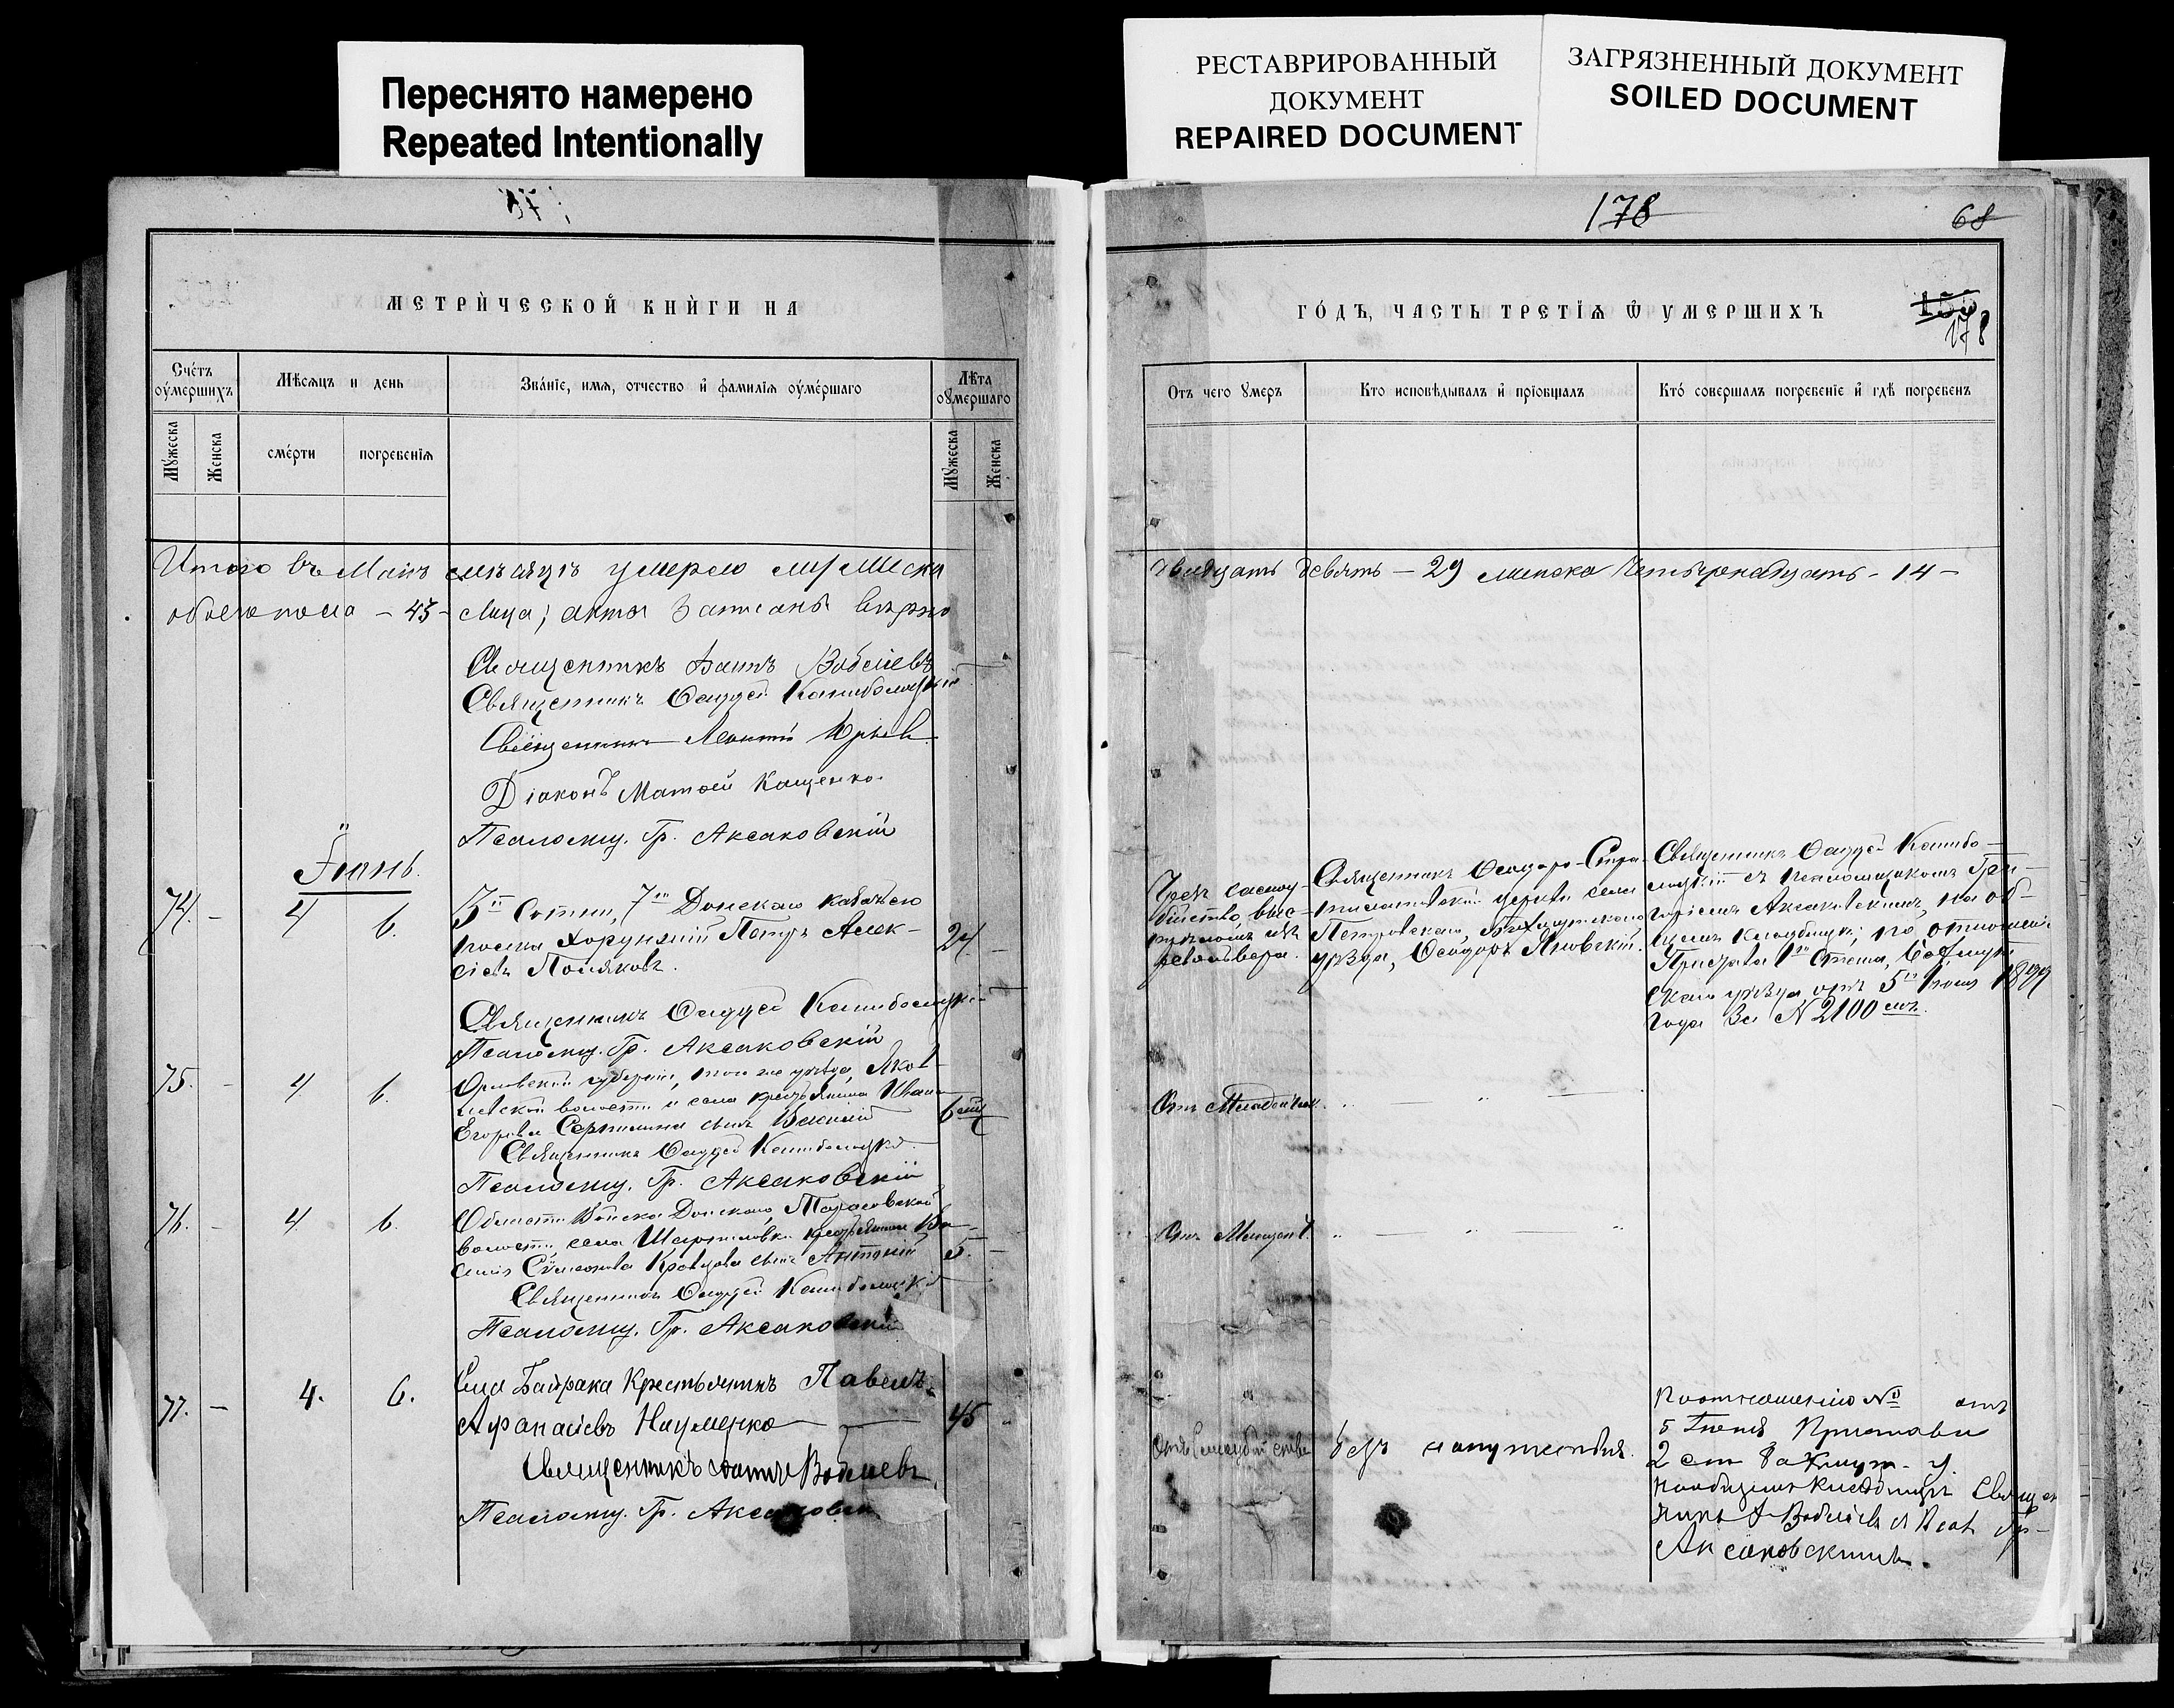 Переснято намерено
Repeated Intentionally
РЕСТАВРИРОВАННЫЙ
ДОКУМЕНТ
REPAIRED DOCUMENT
ЗАГРЯЗНЕННЫЙ ДОКУМЕНТ
SOILED DOCUMENT
МЕТРИ́ЧЕСКОЙ КНИ́ГИ НА
Сче́тъ оу҆ме́ршихъ
Мѣсяцъ и день
Зва́нїе, имѧ, отчество и҆ фамилїѧ оу҆ме́ршаго
Лѣта оу҆мершаго
Мꙋ́жеска
Женска
сме́рти
погребенїѧ
Мꙋ́жеска
Женска
Итого въ Маѣ мѣсяцѣ умерло мужеска
обоего пола - 43 - лица; акты записаны вѣрно
Священникъ
Священникъ Фаддей
Священникъ Леонтій Юрьев
Діаконъ Матѳей Кащенко
Псаломщ. Гр. Аксаковскій
Іюнь.
74. - 4 6.
3й Сотни, 7го Донского казачьяго
полка Хорунжій Петръ Алек-
сіевъ Поляковъ.
24 -
Священникъ Фаддей
Псаломщ. Гр. Аксаковскій
75. - 4 6.
Орловской губерніи, того же уѣзда,
волости и села крестьянина Ивана
Егорова сынъ Василій
6 мц
Священникъ Фаддей
Псаломщ. Гр. Аксаковскій
76. - 4 6.
Области Войска Донского, Тарасовской
волости, села крестьянина Ва-
силія Симеонова Кравцова сынъ Антоній
5. -
Священникъ Фаддей
Псаломщ. Гр. Аксаковскій
77. - 4. 6.
Села Байрака Крестьянинъ Павелъ
Афанасіевъ Науменко
45
Священникъ
Псаломщ. Гр. Аксаковскій
178
68
ГО́ДЪ, ЧАСТЬ ТРЕТЇѦ Ѡ҆ УМЕРШИХЪ
178
Отъ чего ꙋмеръ
Кто исповѣдывалъ и҆ прїобщалъ
Кто́ совершалъ погребенїе и҆ гдѣ погребенъ
двадцать девять - 29 женска четырнадцать - 14 -
Чрез самоу-
бійство, выс-
трѣломъ изъ
револьвера.
Священникъ Ѳеодоро-Стра-
тилатовской церкви села
Петровскаго, Бахмутскаго
уѣзда, Ѳеодоръ Яновскій.
Священникъ Фаддей
съ псаломщикомъ Гри-
горіемъ Аксаковскимъ, на об-
щемъ кладбищѣ, по отношенію
Пристава 1го Стана, Бахмут-
скаго уѣзда отъ 5го Іюня 1899
года за № 2100 мъ.
Отъ
Отъ
Отъ Самоубійства
безъ напутствія.
По отношенію № отъ
5 Іюня Пристава
2 ст Бахмут. у.
на общемъ кладбищѣ Священ
никъ и Псал. Гр-
Аксаковскимъ.